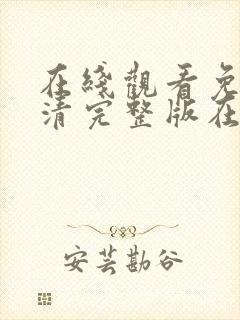 在綫觀看免
清完整版在
安芸勘谷